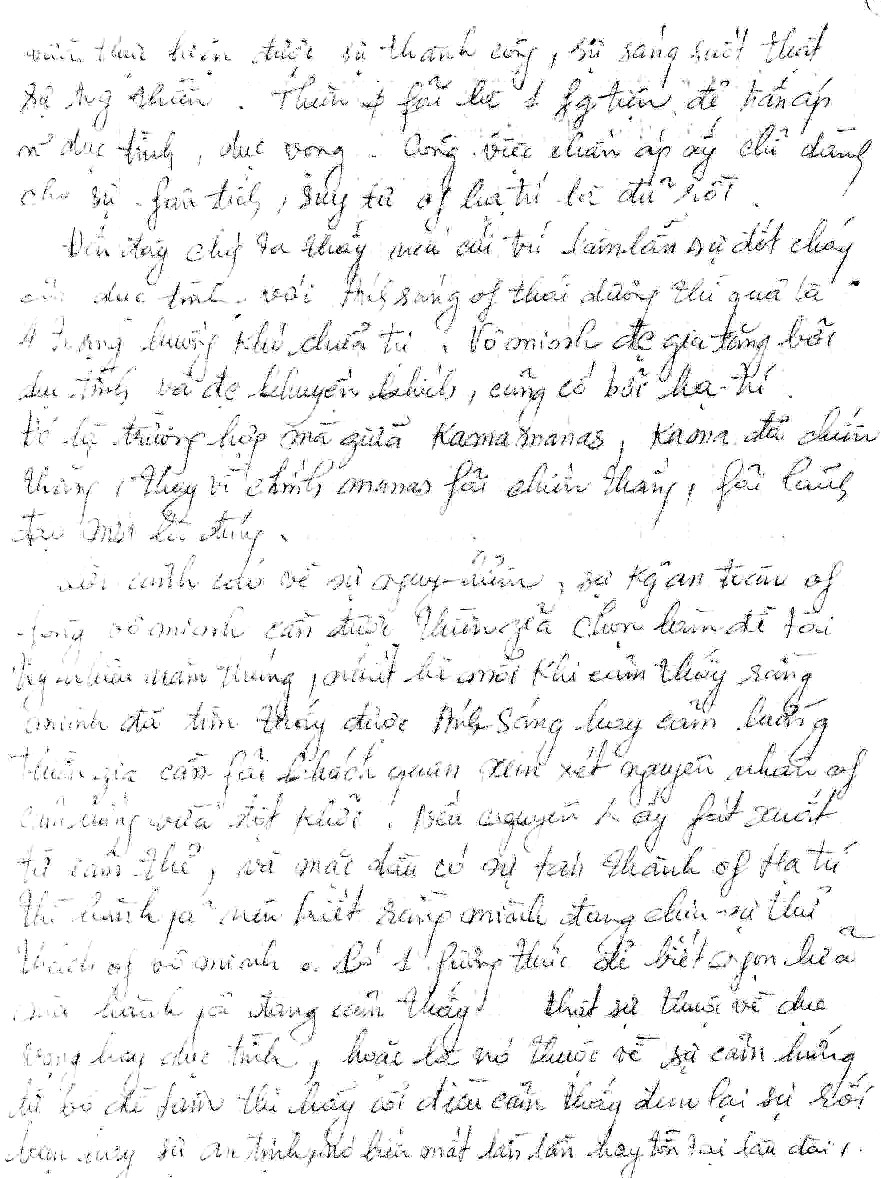 thực hiện được sự thành công, sự sáng suốt thật
sự . Thiền ϕ fải là 1 fg tiện để trấn áp
dục tính, dục vọng . Công việc chấn áp ấy chỉ dành
cho sự fân tích, suy tư of hạ trí là đủ rồi .
Đến đây chg ta thấy nếu cái trí lầm lẫn sự đốt cháy
của dục tính với Ánh sáng of thái dương thì quả là
1 trường hợp khó chữa trị . Vô minh đc gia tăng bởi
dục tính và đc khuyến khích, củng cố bởi hạ-trí .
Đó là trường hợp mà giữa Kamamanas, Kama đã chiến
thắng, thay vì chính manas fải chiến thắng, fải lãnh
đạo mới là đúng .
cảnh cáo về sự nguy-hiểm, sự Kg an toàn of
vô minh cần được thiền giả chọn làm đề tài
năm tháng, nhất là mỗi khi cảm thấy rằng
mình đã tìm thấy được Ánh Sáng hay cảm hứng
thiền giả cần fải khách quan xem xét nguyên nhân of
cảm hứng vừa đột khởi . Nếu nguyên ấy fát xuất
từ cảm thể, và mặc dầu có sự tán thành of Hạ trí
thì hành jả nên biết rằng mình đang chịu sự thử
thách of vô minh . Có 1 fương thức để biết ngọn lửa
mà hành jả đang cảm thấy thật sự thuộc về dục
vọng hay dục tính, hoặc là nó thuộc về sự cảm hứng
bồ đề tâm thì hãy coi điều cảm thấy đem lại sự rối
loạn hay sự an tịnh, nó biến mất lần lần hay tồn tại lâu dài .